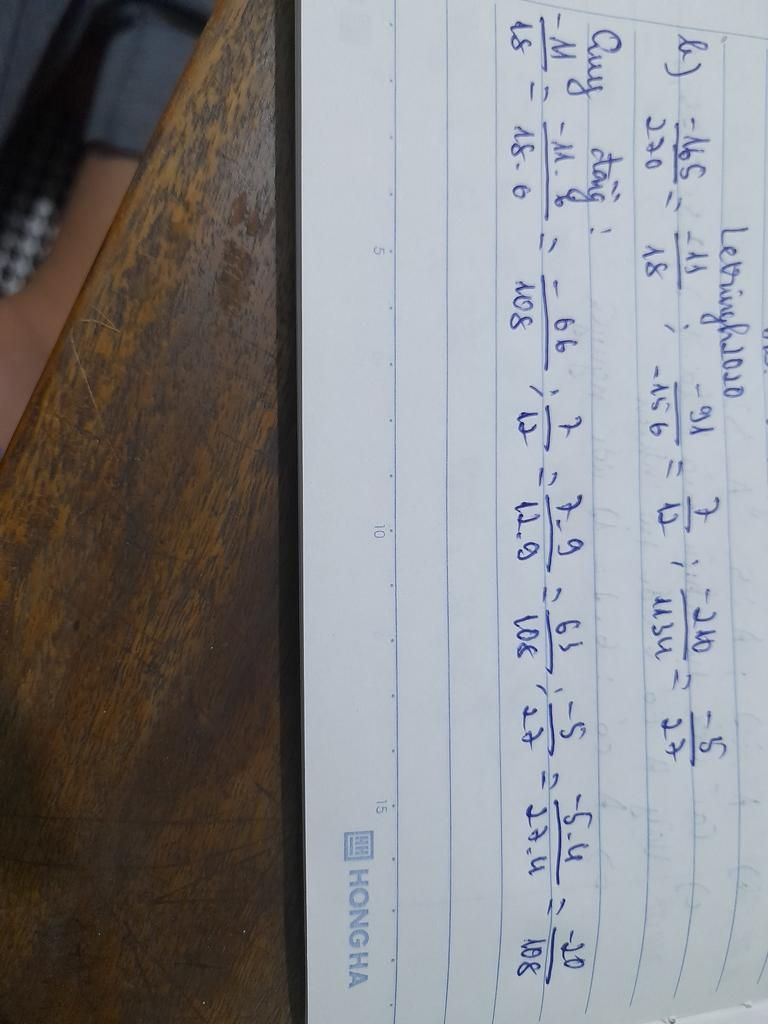 Letringh2010
b) -165/270 = -11/18 ; -91/-156 = 7/12 ; -210/1134 = -5/27
Quy đồng :
-11/18 = -11.6/18.6 = -66/108 ; 7/12 = 7.9/12.9 = 63/108 ; -5/27 = -5.4/27.4 = -20/108
5 10 15
HONG HA